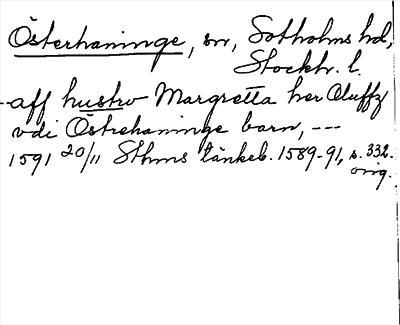 Österhaninge, sn, Sotholms hd,
Stockh. l.
- aff hustro Margretta her Oluffz
vdi Östrehaninge barn, ---
1591 20/11 Sthms tänkeb. 1589-91, s. 332.
orig.